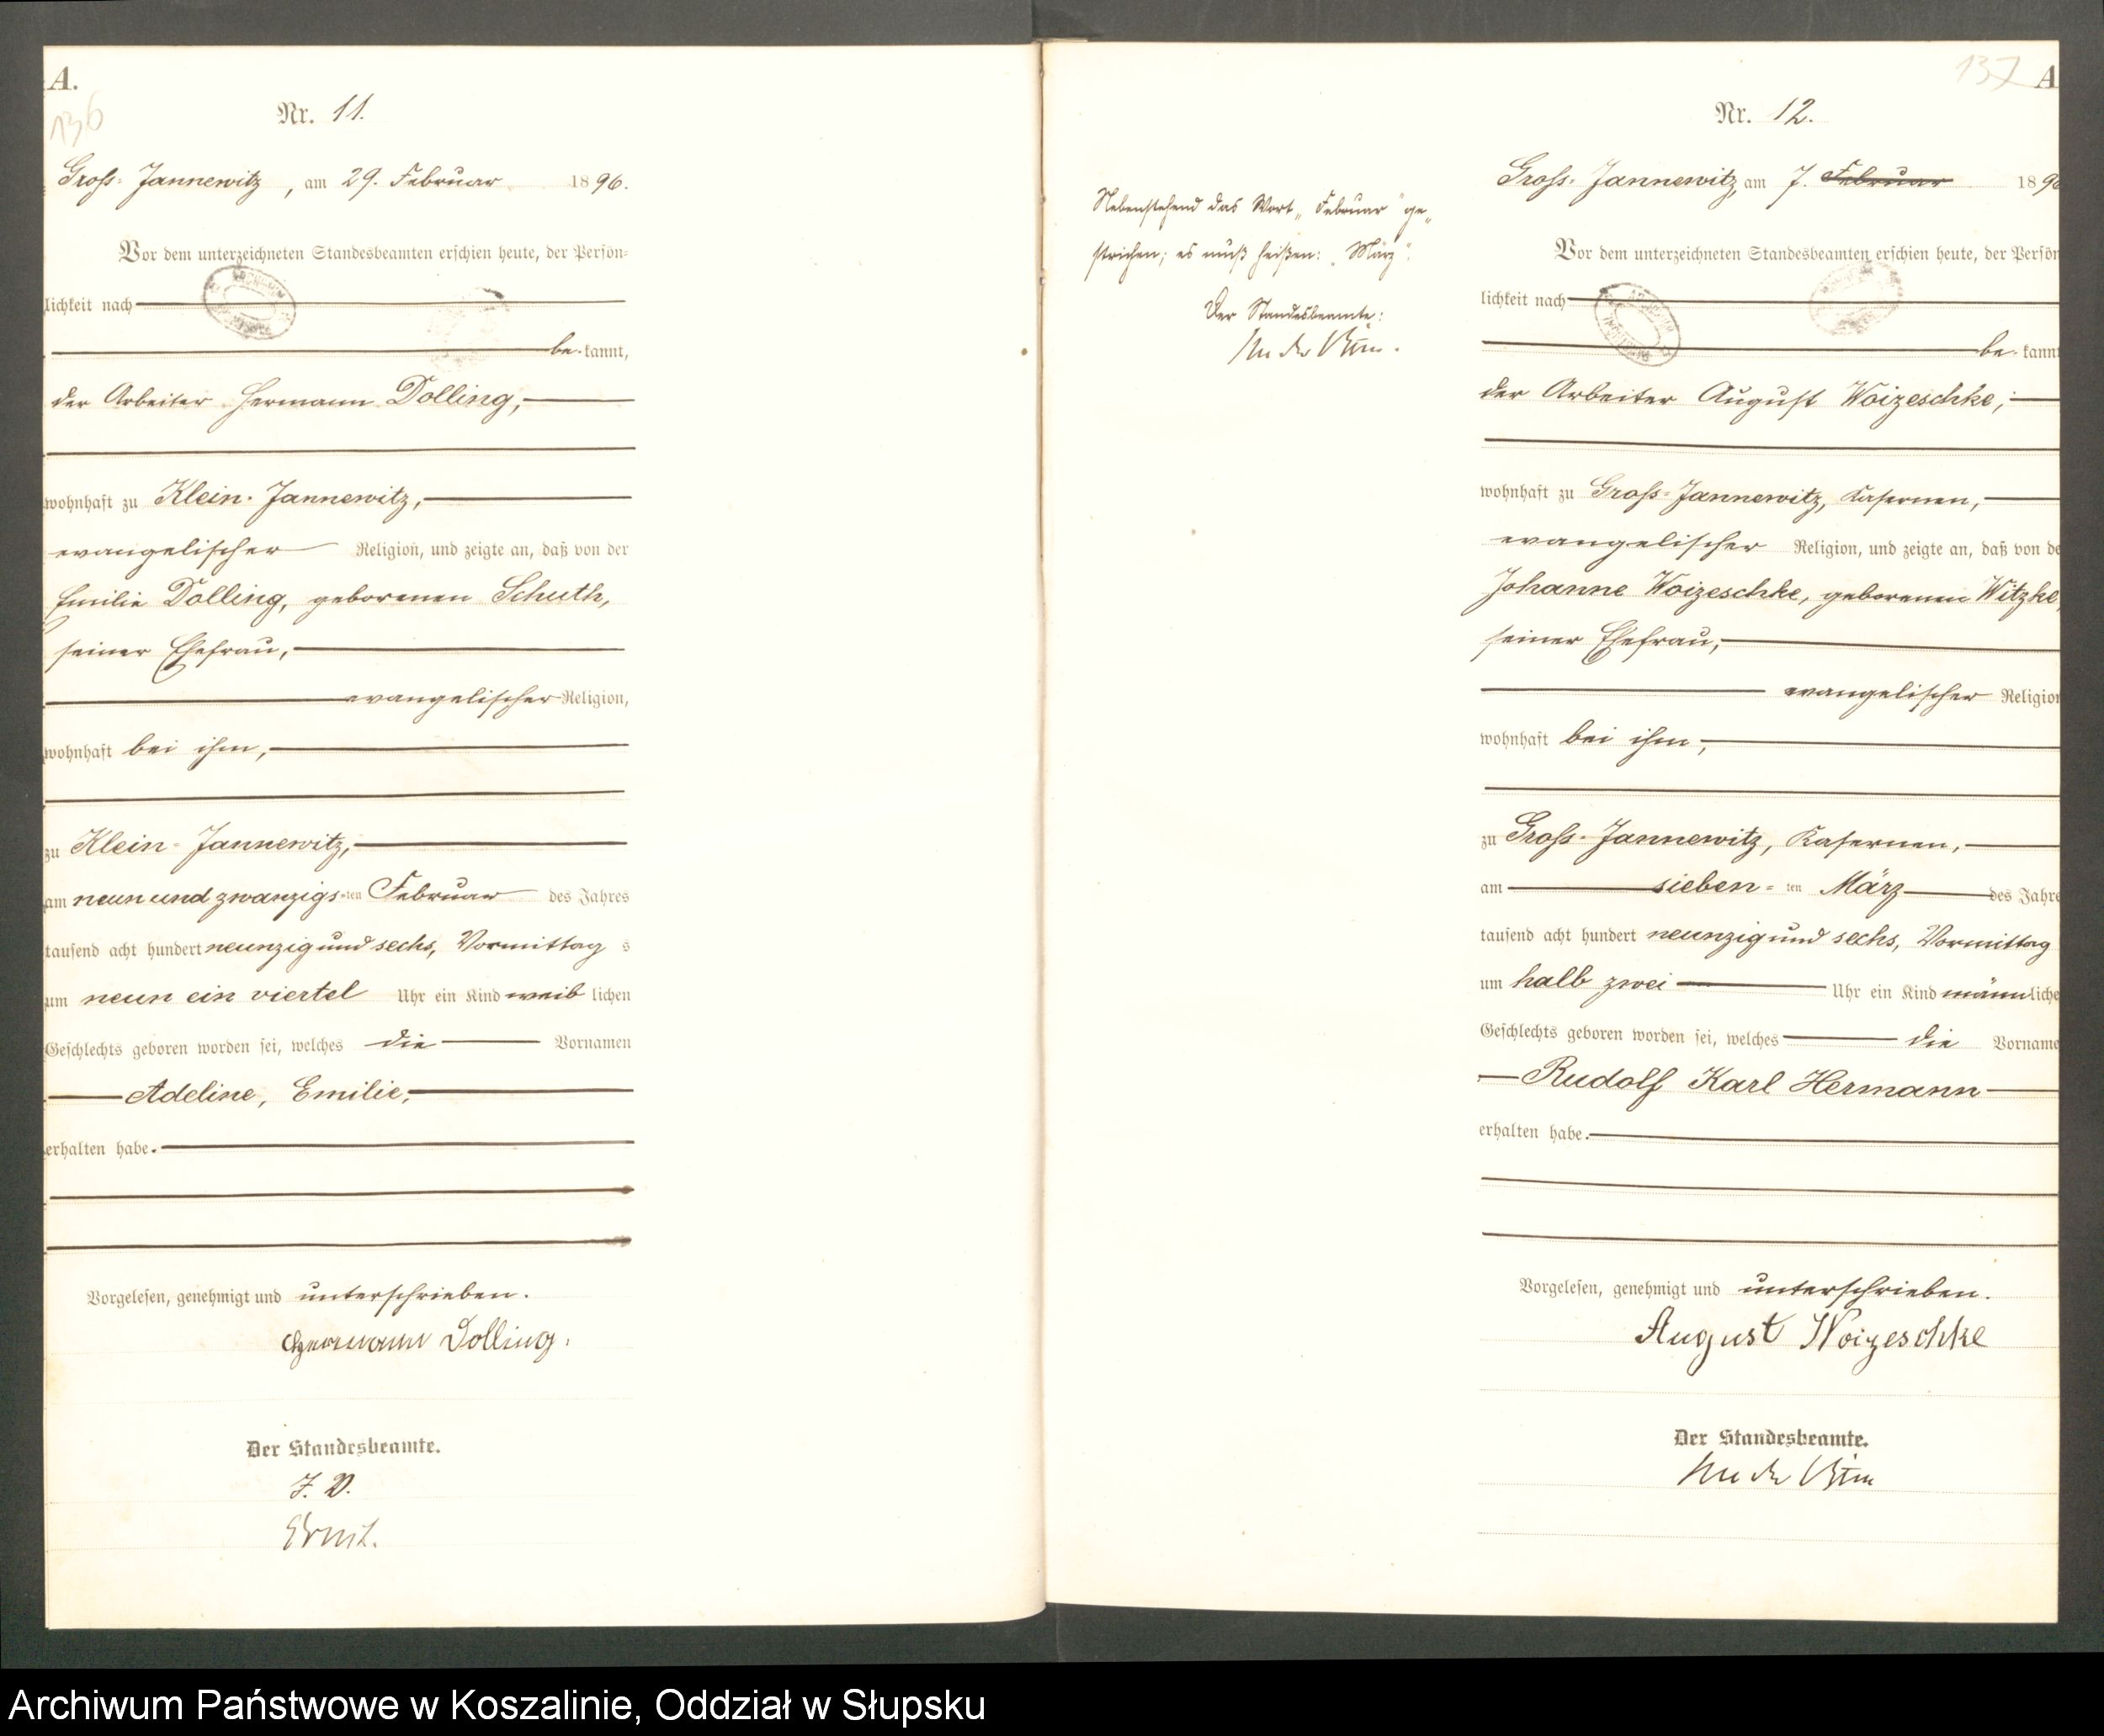 A.
136
Nr. 11.
Gross-Jannewitz, am 29. Februar 1896.
Vor dem unterzeichneten Standesbeamten erschien heute, der Persön-
lichkeit nach
be-kannt,
der Arbeiter Hermann Dolling,
wohnhaft zu Klein-Jannewitz,
evangelischer Religion, und zeigte an, daß von der
Emilie Dolling, geborenen Schuth,
seiner Ehefrau,
evangelischer Religion,
wohnhaft bei ihm,
zu Klein-Jannewitz,
am neun und zwanzigs-ten Februar des Jahres
tausend acht hundert neunzig und sechs, Vormittag s
um neun ein viertel Uhr ein Kind weib lichen
Geschlechts geboren worden sei, welches die Vornamen
Adeline, Emilie,
erhalten habe.
Vorgelesen, genehmigt und unterschrieben.
Hermann Dolling.
Der Standesbeamte.
J. V.
137 A
Nr. 12.
Gross-Jannewitz, am 7. Februar 189
Nebenstehend das Wort „Februar" ge-
strichen; es muß heißen: „März".
Der Standesbeamte:
Vor dem unterzeichneten Standesbeamten erschien heute, der Persön
lichkeit nach
be-kannt
der Arbeiter August Woizeschke,
wohnhaft zu Gross-Jannewitz, Kasernen,
evangelischer Religion, und zeigte an, daß von de
Johanne Woizeschke, geborenen Witzke,
seiner Ehefrau,
evangelischer Religion
wohnhaft bei ihm,
zu Gross-Jannewitz, Kasernen,
am sieben-ten März des Jahre
tausend acht hundert neunzig und sechs, Vormittag
um halb zwei Uhr ein Kind männliche
Geschlechts geboren worden sei, welches die Vorname
Rudolf Karl Hermann
erhalten habe.
Vorgelesen, genehmigt und unterschrieben.
August Woizeschke
Der Standesbeamte.
Archiwum Państwowe w Koszalinie, Oddział w Słupsku